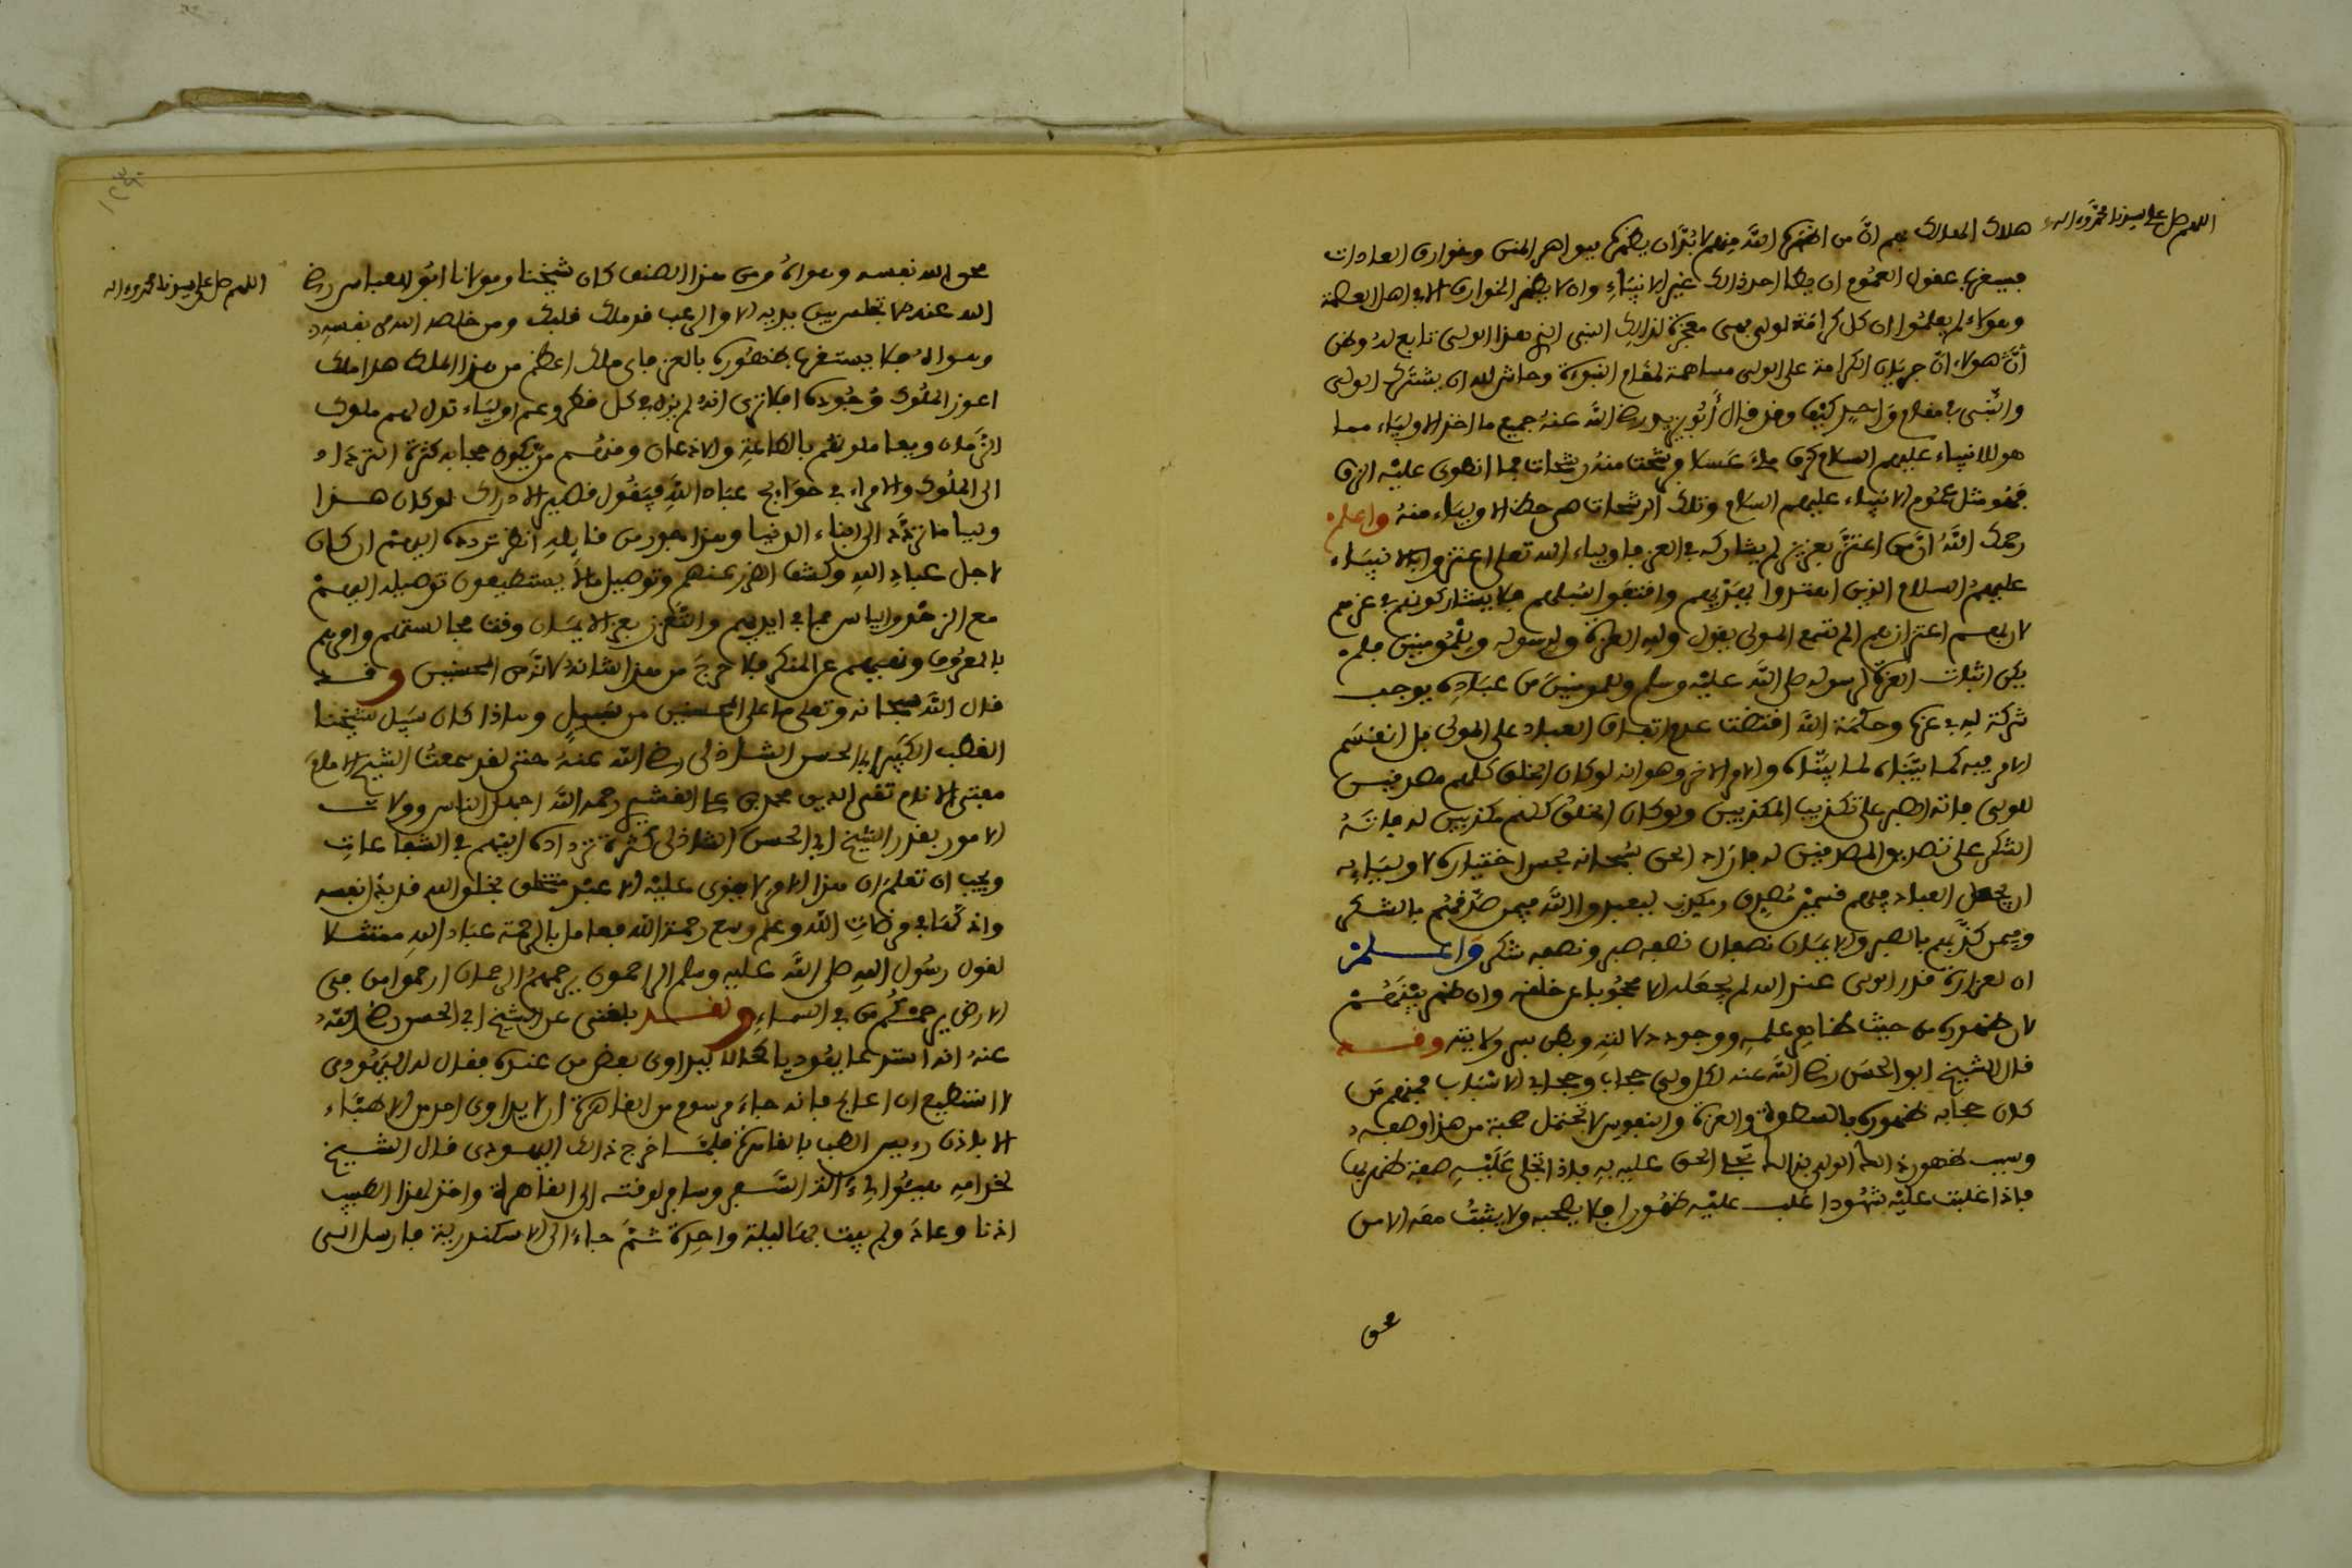 اللهم صل على سيدنا محمد وءاله
هلاك المدارك بهم ان من اظهرها الله منهم لا بد ان يظهرها بمواهر المنن وخوارق العادات
فيسغرب عقول العموم ان يعطا احد ذالك غير الانبياء وان لا يظهر الخوارق الا في اهل العصمة
وهؤلاء لم يعلموا ان كل كرامة لولي هي معجزة لذالك النبي الذي هذا الولي تابع له وظن
هؤلاء ان جريان الكرامة على الولي مساهمة لمقام النبوءة وحاشى لله ان يشترك الولي
والنبي في مقام واحد كيف وقد قال أبو يزيد رضي الله عنه جميع ما اخذ الاولياء مما
هو للانبياء عليهم السلام كزق ملئ عسلا رشحت منه رشحات فما انطوى عليه الزق
فهو مثل علوم الانبياء عليهم السلام وتلك الرشحات هي حظ الاولياء منه واعلم
رحمك الله ان من اعتز بعزيز لم يشاركه في العز فاولياء الله تعلى اعتزوا بالانبياء
عليهم السلام الذين اهتدوا بهديهم واقتفوا سبلهم فلا يشاركونهم في عزهم
لا بهم اعتزازهم الم تسمع المولى يقول ولله العزة ولرسوله وللمومنين فلم
يكن اثبات العزة لرسوله صلى الله عليه وسلم وللمومنين من عباده يوجب
شركة له في عزه وحكمة الله اقتضت عدم اتفاق العباد على المولى بل انقسم
الامر فيه كما بيناه لما بيناه والامر الاخر وهو انه لو كان الخلق كلهم مصدقين
للولي فاته الصبر على تكذيب المكذبين ولو كان الخلق كلهم مكذبين له فاته
الشكر على تصديق المصدقين له فاراد الحق سبحانه بحسن اختياره لاوليائه
ان يجعل العباد فيهم قسمين مصدق ومكذب ليعبدوا الله فيمن صدقهم بالشكر
وفيمن كذبهم بالصبر والايمان نصفان نصفه صبر ونصفه شكر واعلم
ان لعزازة قدر الولي عند الله لم يجعله الا محجوبا عن خلقه وان ظهر بينهم
لان ظهوره من حيث ظاهر علمه ووجود دلالته وبطن بسر ولايته وقد
قال الشيخ ابو الحسن رضي الله عنه لكل ولي حجاب وحجابي الاسباب فمنهم من
كان حجابه ظهوره بالسطوة والعزة والنفوس لا تحتمل صحبة من هذا وصفه
وسبب ظهور ذالك الولي بذالك تجلي الحق عليه به فاذا تجلى عليه صفة ظهر بها
فاذا غلبت عليه شهودا غلب عليه ظهورا فلا يصحبه ولا يثبت معه الا من
محق
اللهم صل على سيدنا محمد وءاله
محق الله نفسه وهواه ومن هذا الصنف كان شيخنا ومولانا ابو العباس رضي
الله عنه لا تجلس بين يديه الا والرعب قد ملك قلبك ومن خلصه الله من نفسه
وهواه فلا يستغرب ظهوره بالعز فاي ملك اعظم من هذا الملك هذا ملك
اعوز الملوك وجوده افلا ترى انه لم يزل في كل قطر وعصر اولياء تذل لهم ملوك
الزمان ويعاملونهم بالطاعة والاذعان ومنهم من يكون حجابه كثرة التردد
الى الملوك والامراء في حوائج عباد الله فيقول قصير الادراك لو كان هذا
وليا ما تردد الى ابناء الدنيا وهذا جور من قائله انظر تردده اليهم ان كان
لاجل عباد الله وكشف الضر عنهم وتوصيل ما لا يستطيعون توصيله اليهم
مع الزهد والياس مما في ايديهم والتعزز بعز الايمان وقت مجالستهم وامرهم
بالمعروف ونهيهم عن المنكر فلا حرج من هذا شانه لانه من المحسنين وقد
قال الله سبحانه وتعلى ما على المحسنين من سبيل وهاذا كان سبيل شيخنا
القطب الكبير ابي الحسن الشاذلي رضي الله عنه حتى لقد سمعت الشيخ الامام
مفتي الانام تقي الدين محمد بن علي القشيري رحمه الله اجهل الناس وولاة
الامور بقدر الشيخ ابي الحسن الشاذلي كثرة ترداده اليهم في الشفاعات
ويجب ان تعلم ان هذا الامر لا يقوى عليه الا عبد متخلق بخلق الله قد بذل نفسه
واذلها في مرضات الله وعلم وسع رحمة الله فعامل بالرحمة عباد الله ممتثلا
لقول رسول الله صلى الله عليه وسلم الراحمون يرحمهم الرحمان ارحموا من في
الارض يرحمكم من في السماء ولقد بلغني عن الشيخ ابي الحسن رضي الله
عنه انه استدعا يهوديا كحالا ليداوى بعض من عنده فقال له اليهودي
لا استطيع ان اعالج فانه جاء مرسوم من القاهرة ان لا يداوي احد من الاطباء
الا باذن رءيس الطب بالقاهرة فلما خرج ذالك اليهودي قال الشيخ
لخدامه هيئوا لي ءالة السفر وسافر لوقته الى القاهرة واخذ لهذا الطبيب
اذنا وعاد ولم يبت بها ليلة واحدة ثم جاء الى الاسكندرية فارسل الى